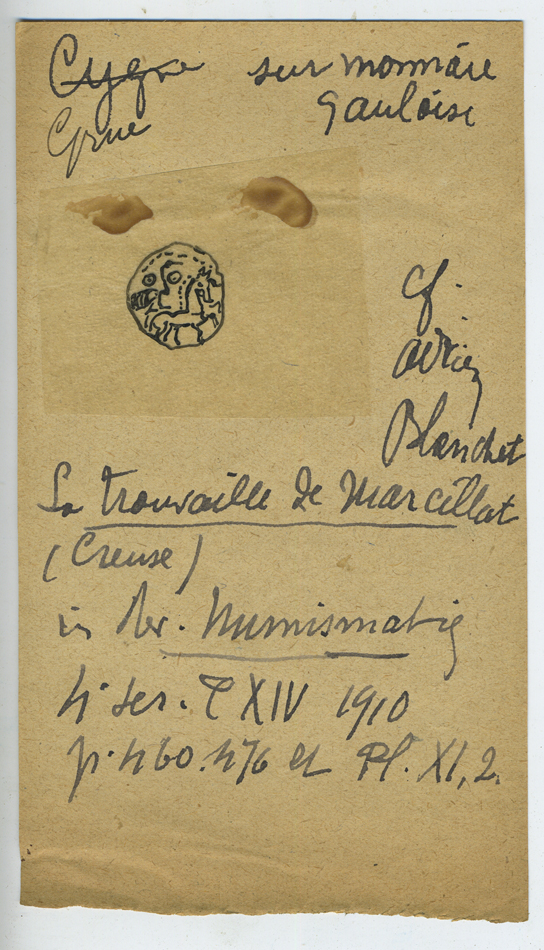 Cygne sur monnaie
Grue gauloise
cf.
Adrien
Blanchet
La trouvaille de Marcillat
(Creuse)
in Rev. Numismatiq
4e ser. T XIV 1910
p. 460.476 et Pl. XI, 2.